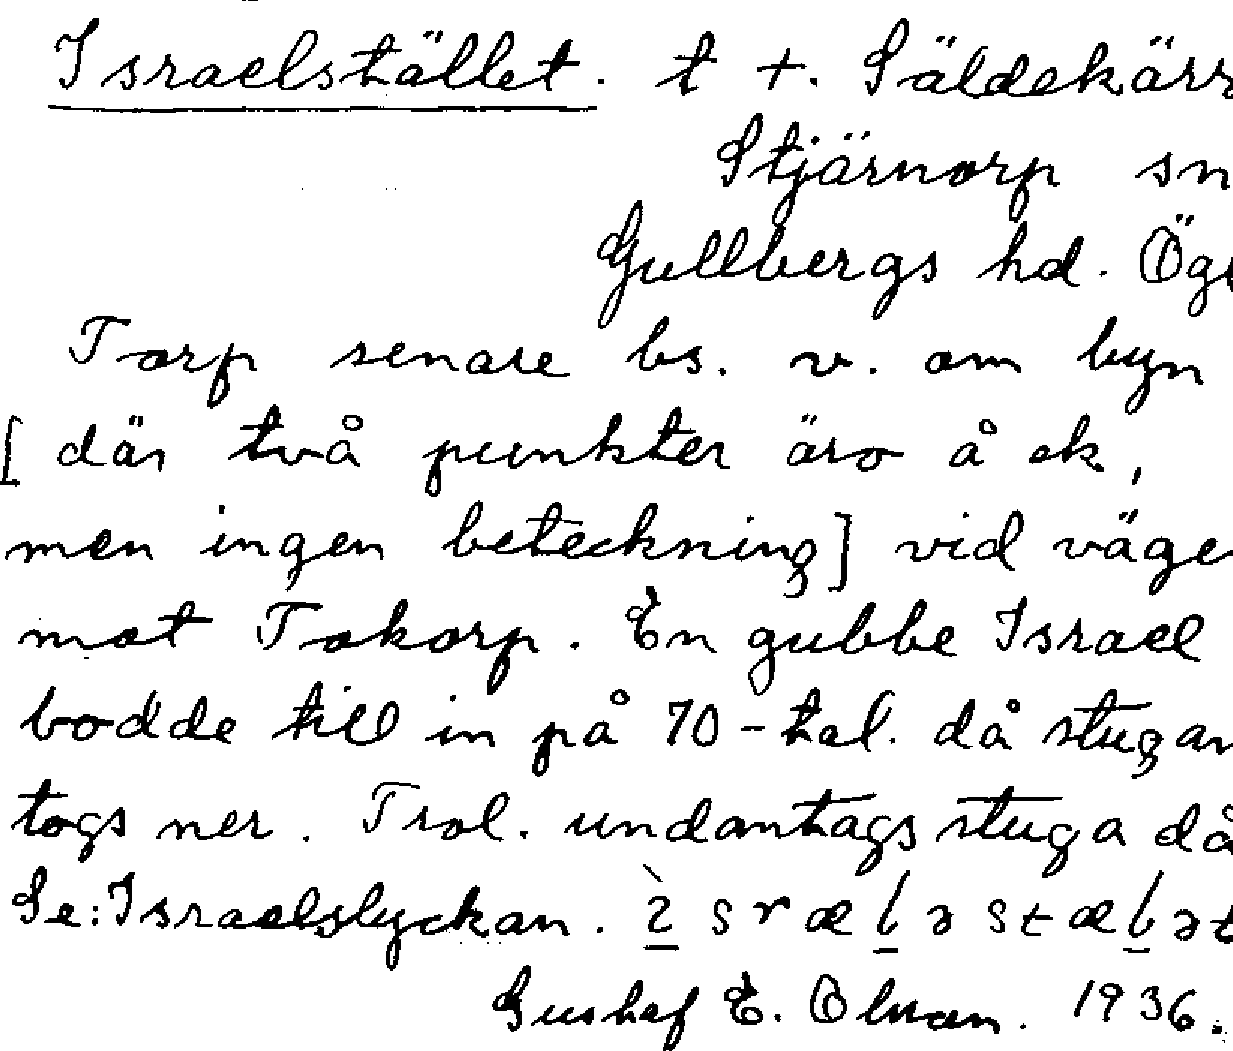 Israelstället. t +. Säldekärr
Stjärnorp sn
Gullbergs hd. Ög
Torp senare bs. v. om byn
[där två punkter äro å ek,
men ingen beteckning] vid väge
mot Tokorp. En gubbe Israel
bodde till in på 70-tal. då stugan
togs ner. Trol. undantagsstuga då
Se: Israelslyckan.
Gustaf E. Olsson. 1936.